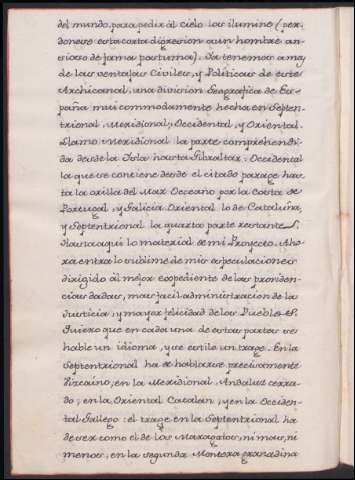 del mundo para pedir al cielo los ilumine (per-
donese esta corta digresion a un hombre an-
sioso de fama postuma). Ya tenemos a mas
de las ventajas Civiles, y Politicas de este
Archicanal, una division Geografica de Es-
paña mui commodamente hecha en Septen-
trional, Meridional, Occidental, y Oriental.
Llamo Meridional la parte comprehendi-
da desde la Isla hasta Gibraltar: Occidental
la que se contiene desde el citado parage has-
ta la orilla del Mar Occeano por la Costa de
Portugal, y Galicia Oriental lo de Cataluña,
y Septentrional la quarta parte restante
Hasta aqui lo material de mi Proyecto. Aho-
ra entra lo sublime de mis especulaciones
dirigido al mejor expediente de las providen-
cias dadas, mas facil administracion de la
Justicia, y mayor felicidad de los Pueblos.
Quiero que en cada una de estas partes se
hable un idioma, y se estile un trage. En la
Septentrional ha de hablarse precisamente
Vizcaino, en la Meridional Andaluz cerra-
do, en la Oriental Catalan, y en la Occiden-
tal Gallego: el trage en la Septentrional ha
de ser como el de los Maragatos, ni mas, ni
menos, en la segunda Montera granadina